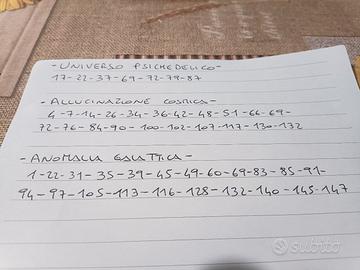 - UNIVERSO PSICHEDELICO -
17-22-37-69-72-79-87
- ALLUCINAZIONE COSMICA -
4-7-14-26-34-36-42-48-51-66-69-
72-76-84-90-100-102-107-117-130-132
- ANOMALIA GALATTICA -
1-22-31-35-39-45-49-60-69-83-85-91-
94-97-105-113-116-128-132-140-145-147
subito